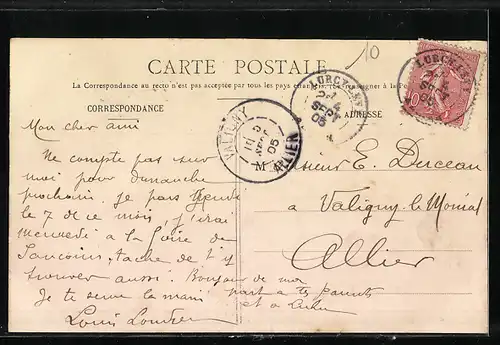 10
CARTE POSTALE
La Correspondance au recto n'est pas acceptée par tous les pays étrangers, se renseigner à la Poste
CORRESPONDANCE
ADRESSE
LURCY-LEVY
SEPT
05
VALIGNY
SEPT
05
ALLIER
10
Mon cher ami
Ne compte pas sur
moi pour dimanche
prochain. Je pars
le 7 de ce mois, j'irai
mercredi à la foire de
Sancoins, tache de t'y
trouver aussi. Bonjour de ma
part à tes parents
et à
Je te serre la main
Louis
M
Monsieur E. Duceau
à Valigny le Monial
Allier